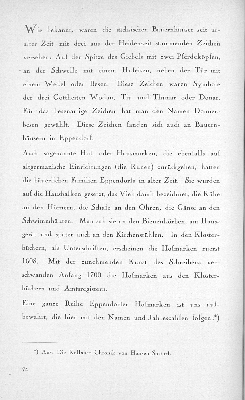 Wie bekannt, waren die sächsischen Bauernhäuser seit uralter
Zeit mit drei aus der Heidenzeit stammenden Zeichen
versehen: Auf der Spitze des Giebels mit zwei Pferdeköpfen,
an der Schwelle mit einem Hufeisen, neben der Tür mit
einem Wedel oder Besen. Diese Zeichen waren Symbole
der drei Gottheiten Wodan, Tiu und Thunar oder Donar.
Für das derzeitige Zeichen hat man den Namen Donner-
besen gewählt. Diese Zeichen fanden sich auch an Bauern-
häusern in Eppendorf.
Auch sogenannte Hof- oder Hausmarken, die ebenfalls auf
altgermanische Einrichtungen (die Runen) zurückgehen, hatten
die bäuerlichen Familien Eppendorfs in alter Zeit. Sie wurden
auf die Hausbalken gesetzt, das Vieh damit bezeichnet, die Kühe
an den Hörnern, die Schafe an den Ohren, die Gänse an den
Schwimmhäuten. Man sah sie an den Bienenkörben, am Haus-
gerät und später auch an den Kirchenstühlen. In den Kloster-
büchern, als Unterschriften, erscheinen die Hofmarken zuerst
1608. Mit der zunehmenden Kunst des Schreibens ver-
schwanden Anfang 1700 die Hofmarken aus den Kloster-
büchern und Amtsregistern.
Eine ganze Reihe Eppendorfer Hofmarken ist uns auf-
bewahrt, die hier mit den Namen und Jahreszahlen folgen.*)
*) Aus: Die Kellsche Chronik von Hansen